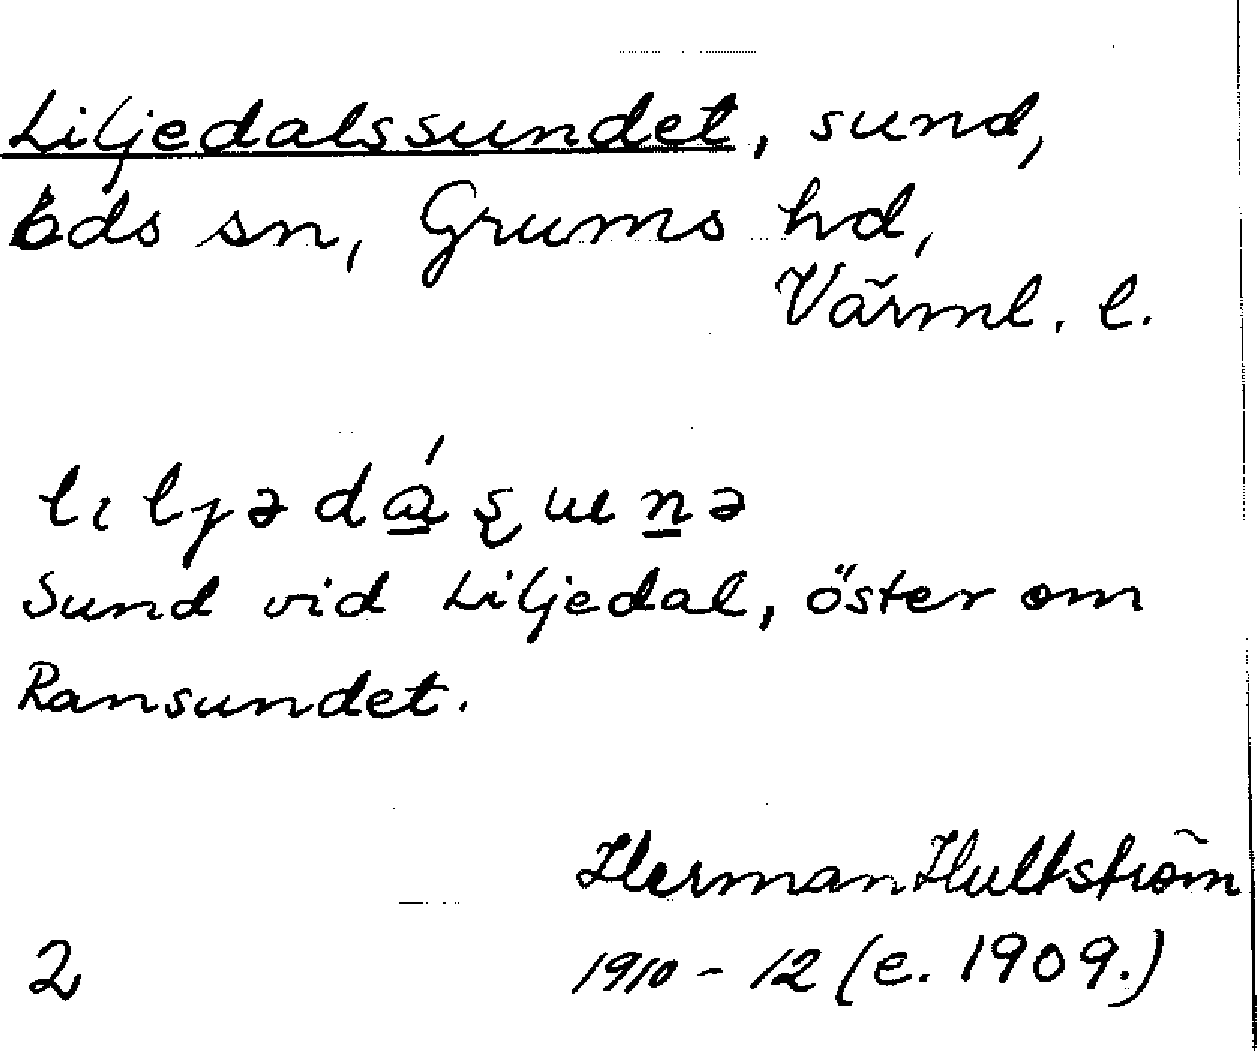 Liljedalssundet, sund,
Eds sn, Grums hd,
Värml. l.
lɩljədá̱ʂuṉə
Sund vid Liljedal, öster om
Ransundet.
Herman Hultström
2 1910-12 (e. 1909.)